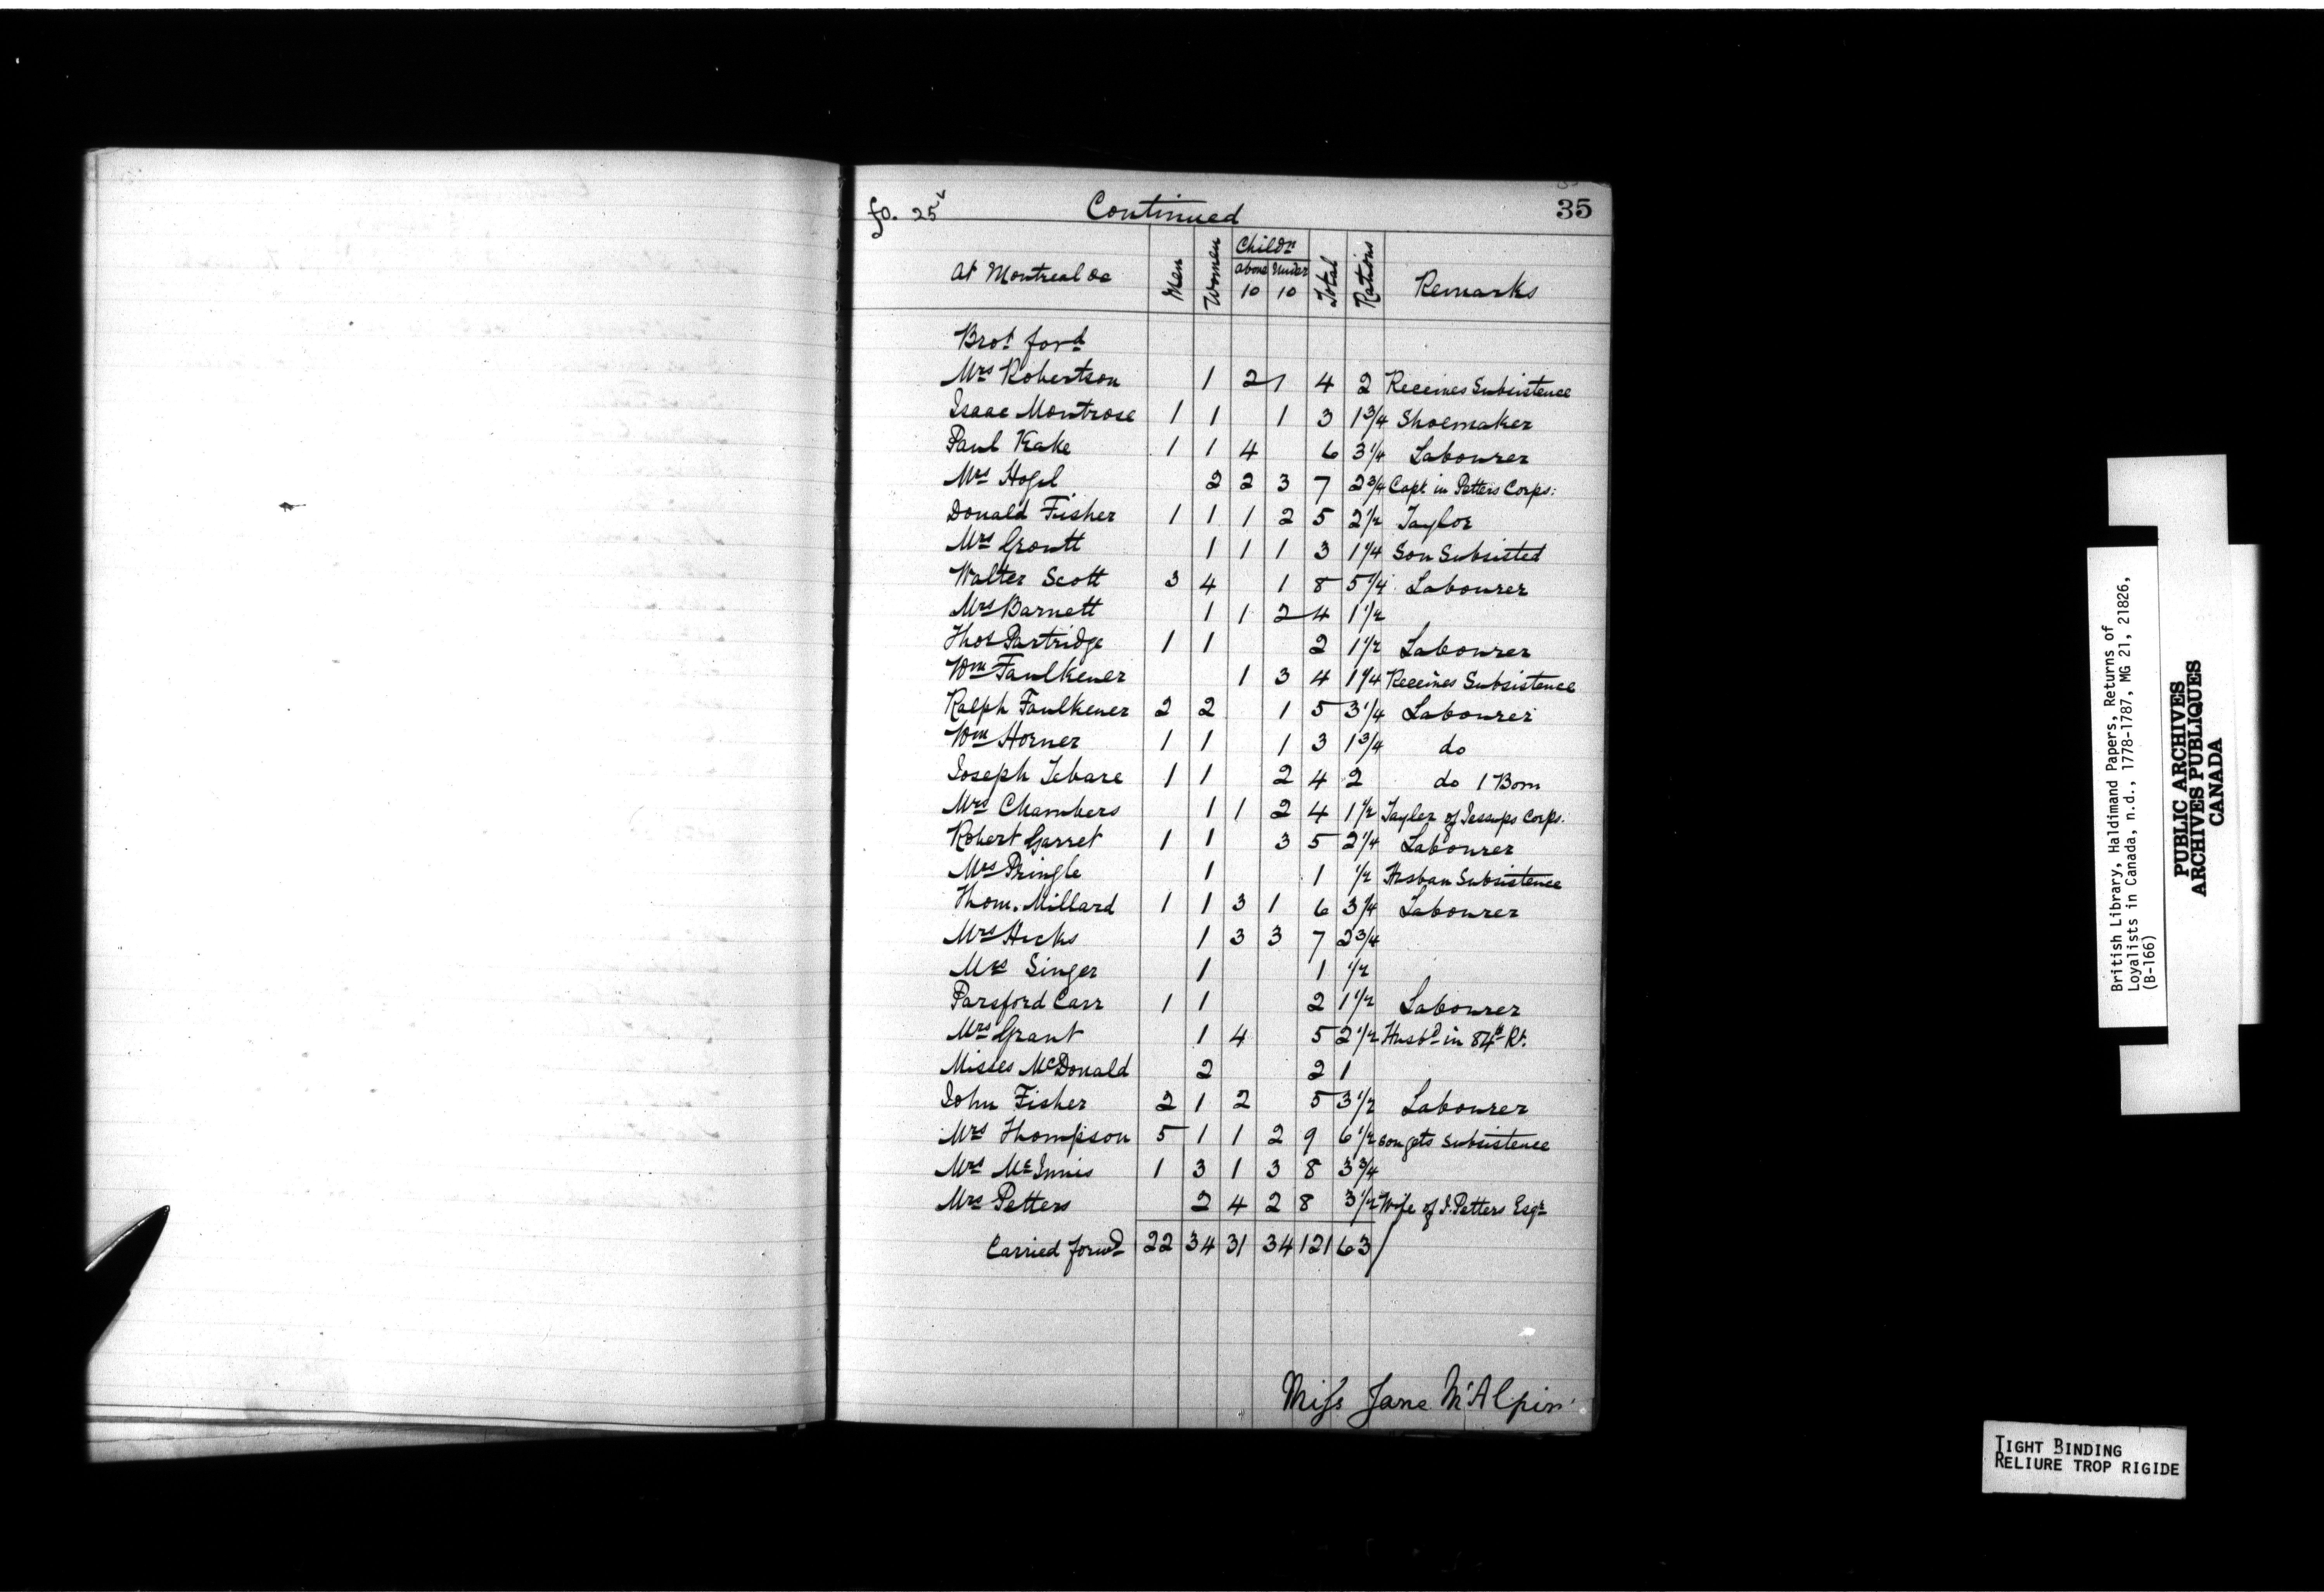 fo. 25v Continued 35
At Montreal &c Men Women Childn above 10 Under 10 Total Rations Remarks
Brot ford
Mrs Robertson 1 2 1 4 2 Receives Subsistence
Isaac Montrose 1 1 1 3 1 3/4 Shoemaker
Paul Kake 1 1 4 6 3 1/4 Labourer
Mrs Hogel 2 2 3 7 2 3/4 Capt in Petters Corps:
Donald Fisher 1 1 1 2 5 2 1/2 Taylor
Mrs Groutt 1 1 1 3 1 1/4 Son Subsisted
Walter Scott 3 4 1 8 5 1/4 Labourer
Mrs Barnett 1 1 2 4 1 1/2
Thos Partridge 1 1 2 1 1/2 Labourer
Wm Faulkener 1 3 4 1 1/4 Receives Subsistence
Ralph Faulkener 2 2 1 5 3 1/4 Labourer
Wm Horner 1 1 1 3 1 3/4 do
Joseph Tebare 1 1 2 4 2 do 1 Born
Mrs Chambers 1 1 2 4 1 1/2 Tayler of Jessups Corps.
Robert Garret 1 1 3 5 2 1/4 Labourer
Mrs Pringle 1 1 1/2 Husban Subsistence
Thom. Millard 1 1 3 1 6 3 1/4 Labourer
Mrs Hicks 1 3 3 7 2 3/4
Mrs Singer 1 1 1/2
Parsford Carr 1 1 2 1 1/2 Labourer
Mrs Grant 1 4 5 2 1/2 Husbd in 84th Rt.
Misses McDonald 2 2 1
John Fisher 2 1 2 5 3 1/2 Labourer
Mrs Thompson 5 1 1 2 9 6 1/2 son gts Subsistence
Mrs McInnis 1 3 1 3 8 3 3/4
Mrs Petters 2 4 2 8 3 1/2 Wife of J. Petters Esqr
Carried forwd 22 34 31 34 121 63/
Miss Jane McAlpin
British Library, Haldimand Papers, Returns of
Loyalists in Canada, n.d., 1778-1787, MG 21, 21826,
(B-166)
PUBLIC ARCHIVES
ARCHIVES PUBLIQUES
CANADA
TIGHT BINDING
RELIURE TROP RIGIDE